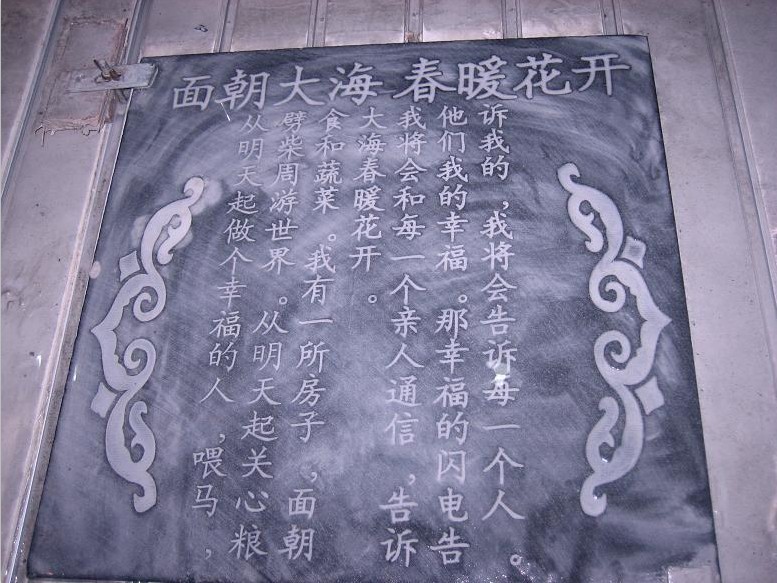 面朝大海 春暖花开
从明天起做个幸福的人，喂马，
劈柴周游世界。从明天起关心粮
食和蔬菜。我有一所房子，面朝
大海春暖花开。
我将会和每一个亲人通信，告诉
他们我的幸福。那幸福的闪电告
诉我的，我将会告诉每一个人。